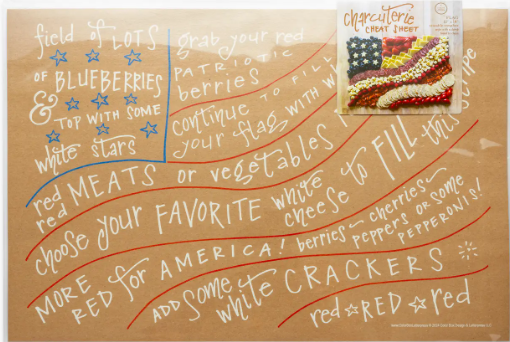 field of LOTS
OF BLUEBERRIES
& TOP WITH SOME
white stars
grab your red
PATRIOTIC
berries
continue TO FILL
your flag WITH
red MEATS or vegetables
red
this stripe
choose your FAVORITE white cheese to FILL
MORE RED for AMERICA! berries~cherries~
peppers OR SOME
PEPPERONIS!
ADD some white CRACKERS
red☆RED☆red
charcuterie
CHEAT SHEET